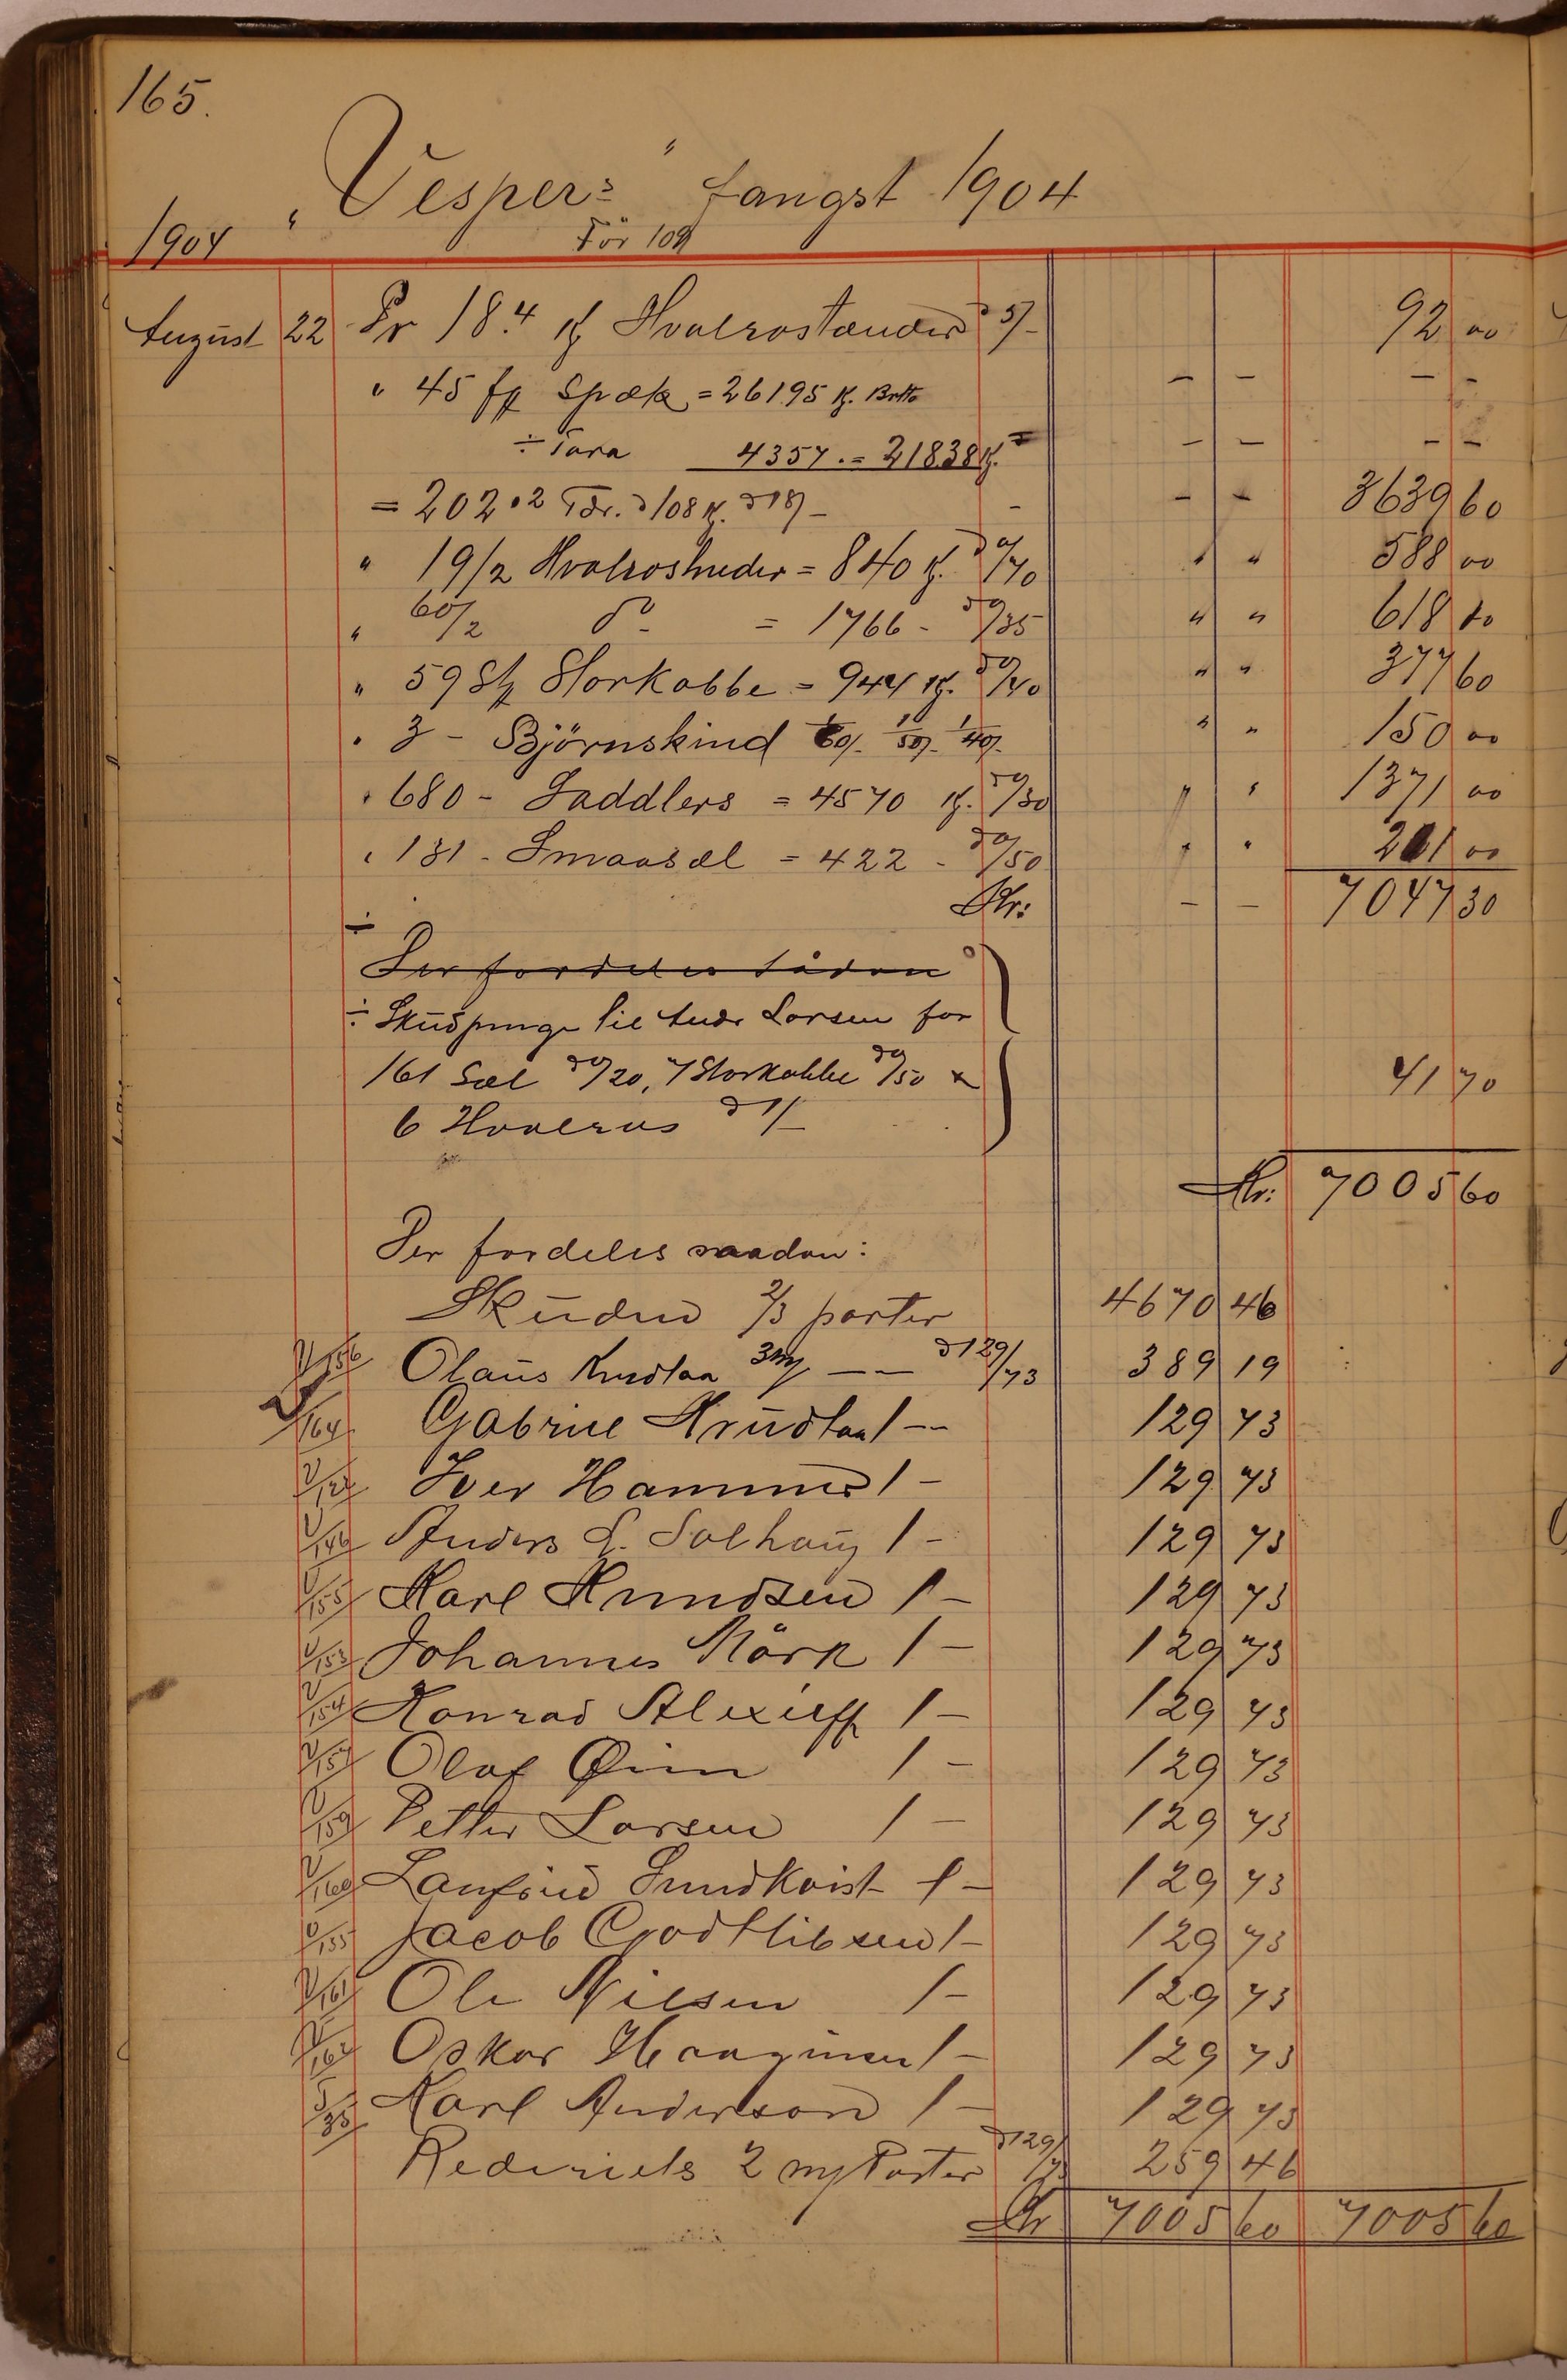 165.
"Vesper's" fangst 1904
1904 För 109
August 22 Pr 18.4 K Hvalrostænder à 5/- 92 00
" 45 fp Spæk = 26195 K. Brtto - - - -
÷ Tara 4357. = 21838 K. - - - -
= 202.2 Tdr. à 108 K. à 18/- - - - 3639 60
" 19/2 Hvalroshuder = 840 K. à 0/70 " " 588 00
" 60/2 do = 1766 - à 0/35 " " 618 10
" 59 Stk Storkobbe = 944 K. à 0/40 " " 377 60
" 3 - Björnskind 1/60/- 1/50/- 1/40/- " " 150 00
" 680 - Saddlers = 4570 K. à 0/30 " " 1371 00
" 131 - Smaasæl = 422 - à 0/50 " " 211 00
Kr: - - 7047 30
÷
Der fordeles sådan
÷ Skudpenge til Andr Larsen for
161 Sæl à 0/20, 7 Storkobbe à 0/50 x 41 70
6 Hvalrus à 1/-
Kr: 7005 60
Der fordeles saadan:
Skuden 2/3 parter 4670 46
V/156 Olaus Knudtaa 3 ny -- à 129/73 389 19
V/164 Gabriel Knudtaa 1 -- 129 73
Iver Hammer 1 - 129 73
V/146 Anders L. Solhaug 1 - 129 73
V/155 Karl Knudsen 1 - 129 73
V/153 Johannes Mörk 1 - 129 73
V/154 Konrad Alexieff 1 - 129 73
V/157 Olaf Øien 1 - 129 73
V/159 Petter Larsen 1 - 129 73
V/160 Sundkvist 1 - 129 73
V/155 Jacob Godtlibsen 1 - 129 73
V/161 Ole Nilsen 1 - 129 73
V/162 Oskar Haagensen 1 - 129 73
5/35 Karl Anderson 1 - 129 73
Rederiets 2 ny Parter à 129/73 259 46
Kr 7005 60 7005 60